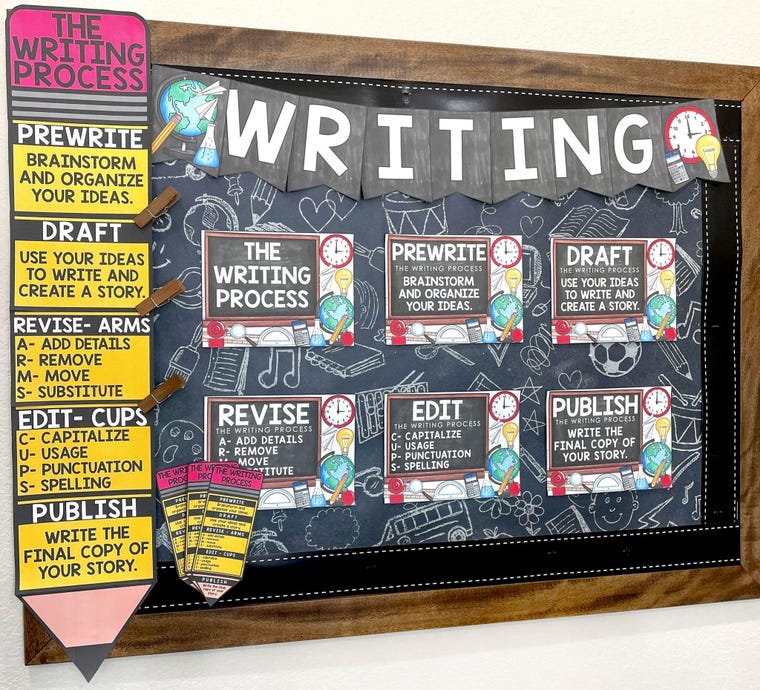 THE
WRITING
PROCESS
PREWRITE
BRAINSTORM
AND ORGANIZE
YOUR IDEAS.
DRAFT
USE YOUR IDEAS
TO WRITE AND
CREATE A STORY.
REVISE- ARMS
A- ADD DETAILS
R- REMOVE
M- MOVE
S- SUBSTITUTE
EDIT- CUPS
C- CAPITALIZE
U- USAGE
P- PUNCTUATION
S- SPELLING
PUBLISH
WRITE THE
FINAL COPY OF
YOUR STORY.
WRITING
THE
WRITING
PROCESS
PREWRITE
THE WRITING PROCESS
BRAINSTORM
AND ORGANIZE
YOUR IDEAS.
DRAFT
THE WRITING PROCESS
USE YOUR IDEAS
TO WRITE AND
CREATE A STORY.
REVISE
THE WRITING PROCESS
A- ADD DETAILS
R- REMOVE
MOVE
TITUTE
EDIT
THE WRITING PROCESS
C- CAPITALIZE
U- USAGE
P- PUNCTUATION
S- SPELLING
PUBLISH
THE WRITING PROCESS
WRITE THE
FINAL COPY OF
YOUR STORY.
THE WRITING
PROCESS
PREWRITE
Brainstorm and
organize your
ideas.
DRAFT
Use your ideas and
create a story.
REVISE - ARMS
EDIT - CUPS
PUBLISH